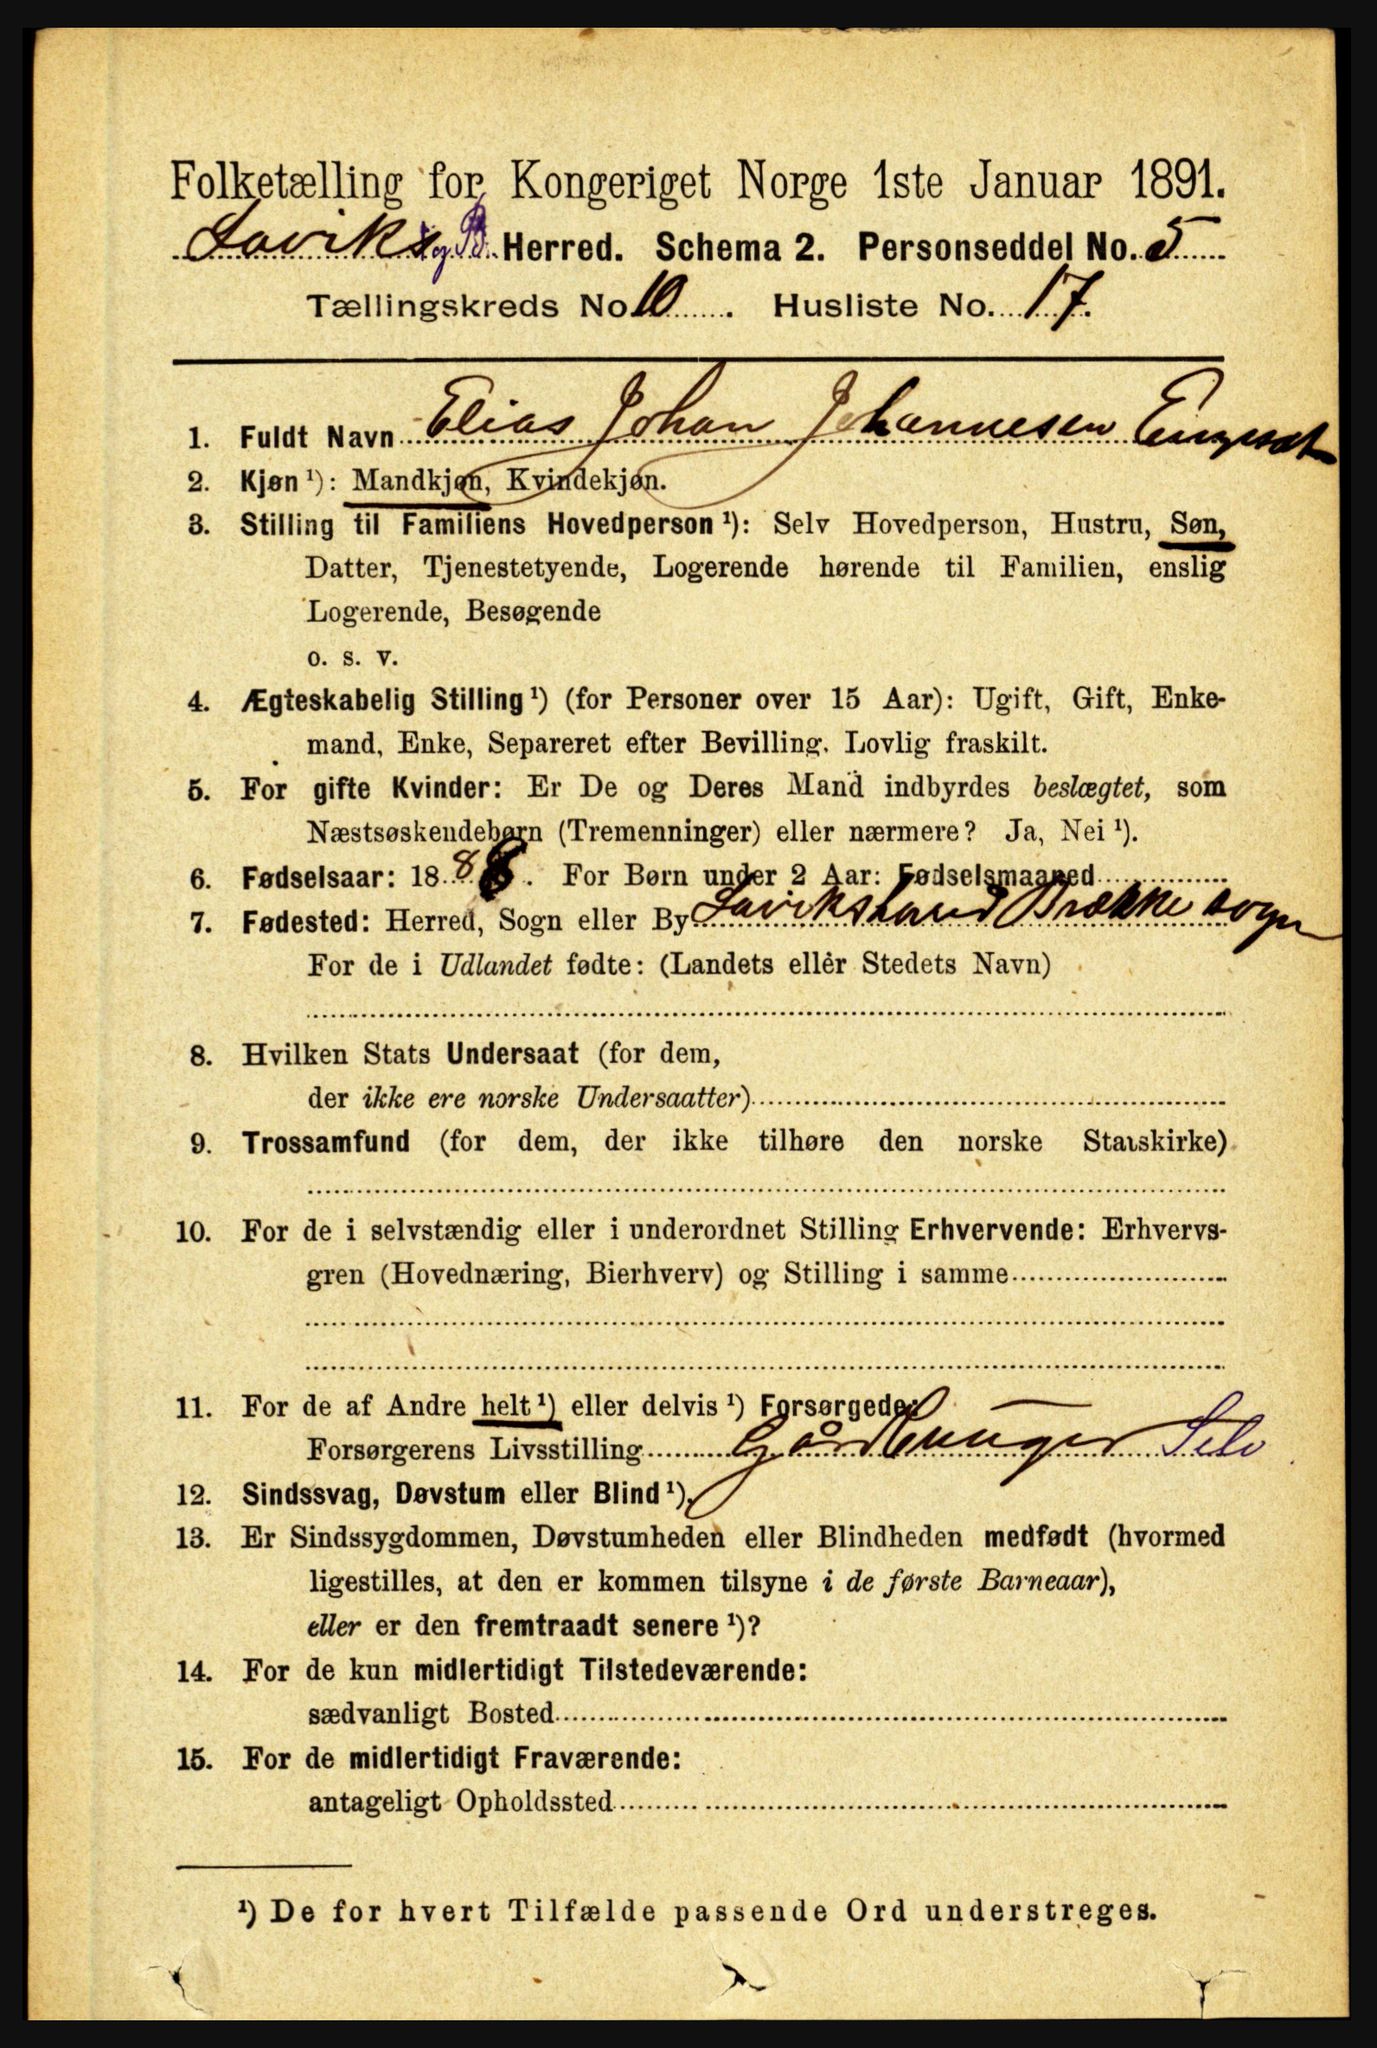 Folketælling for Kongeriget Norge 1ste Januar 1891.
Laviks og B. Herred. Schema 2. Personseddel No. 5
Tællingskreds No 10. Husliste No. 17.
1. Fuldt Navn Elias Johan Johannesen
2. Kjøn ¹): Mandkjøn, Kvindekjøn.
3. Stilling til Familiens Hovedperson ¹): Selv Hovedperson, Hustru, Søn,
Datter, Tjenestetyende, Logerende hørende til Familien, enslig
Logerende, Besøgende
o. s. v.
4. Ægteskabelig Stilling ¹) (for Personer over 15 Aar): Ugift, Gift, Enke-
mand, Enke, Separeret efter Bevilling. Lovlig fraskilt.
5. For gifte Kvinder: Er De og Deres Mand indbyrdes beslægtet, som
Næstsøskendebørn (Tremenninger) eller nærmere? Ja, Nei ¹).
6. Fødselsaar: 1888. For Børn under 2 Aar: Fødselsmaaned
7. Fødested: Herred, Sogn eller By Laviks Brække sogn
For de i Udlandet fødte: (Landets eller Stedets Navn)
8. Hvilken Stats Undersaat (for dem,
der ikke ere norske Undersaatter)
9. Trossamfund (for dem, der ikke tilhøre den norske Statskirke)
10. For de i selvstændig eller i underordnet Stilling Erhvervende: Erhvervs-
gren (Hovednæring, Bierhverv) og Stilling i samme
11. For de af Andre helt ¹) eller delvis ¹) Forsørgede:
Forsørgerens Livsstilling Gårdbruger Selv
12. Sindssvag, Døvstum eller Blind ¹).
13. Er Sindssygdommen, Døvstumheden eller Blindheden medfødt (hvormed
ligestilles, at den er kommen tilsyne i de første Barneaar),
eller er den fremtraadt senere ¹)?
14. For de kun midlertidigt Tilstedeværende:
sædvanligt Bosted
15. For de midlertidigt Fraværende:
antageligt Opholdssted
¹) De for hvert Tilfælde passende Ord understreges.